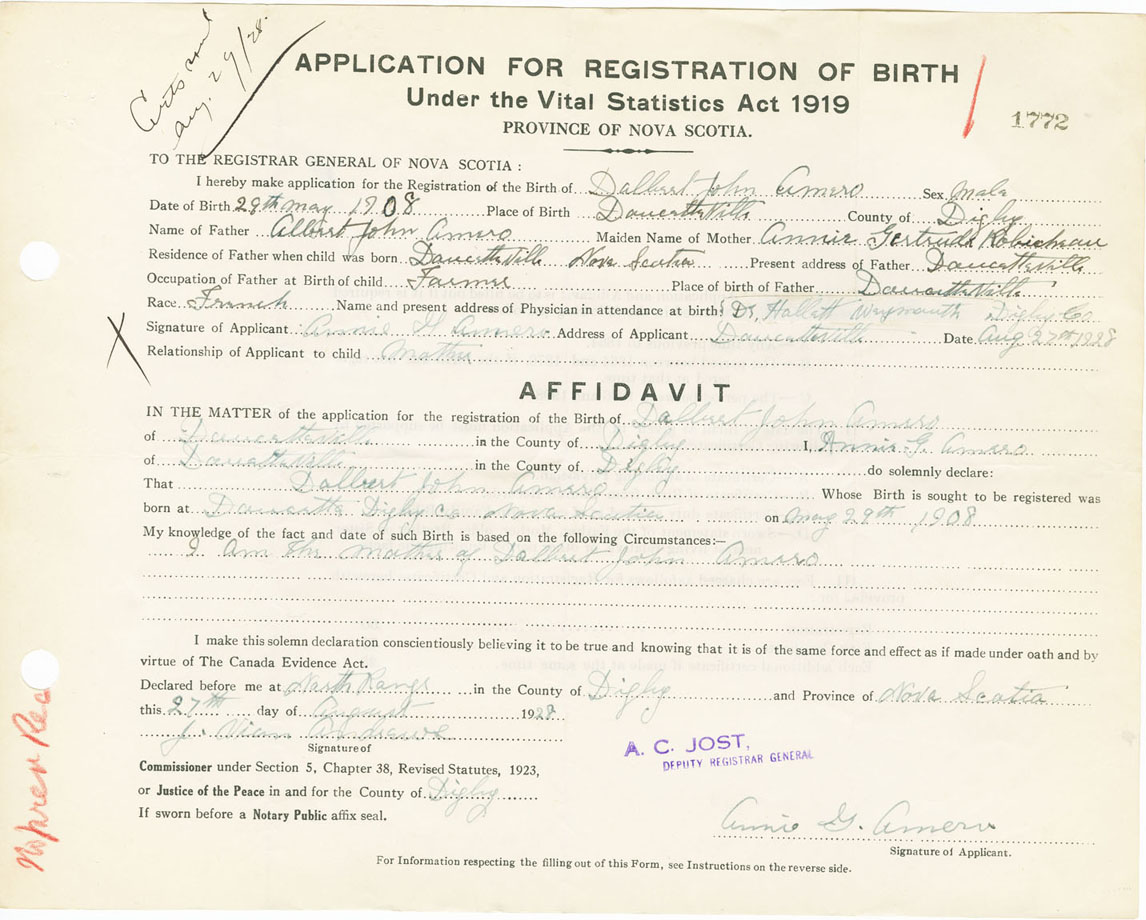 Certs sent
Aug. 29/28.
APPLICATION FOR REGISTRATION OF BIRTH
Under the Vital Statistics Act 1919
PROVINCE OF NOVA SCOTIA.
1772
TO THE REGISTRAR GENERAL OF NOVA SCOTIA :
I hereby make application for the Registration of the Birth of Dalbert John Amero Sex Male
Date of Birth 29th May 1908 Place of Birth Doucetteville County of Digby
Name of Father Albert John Amero Maiden Name of Mother Annie Gertrude Robicheau
Residence of Father when child was born Doucetteville Nova Scotia Present address of Father Doucetteville
Occupation of Father at Birth of child Farmer Place of birth of Father Doucetteville
Race French Name and present address of Physician in attendance at birth} Dr. Hallett Weymouth Digby Co
Signature of Applicant Annie G Amero Address of Applicant Doucetteville Date Aug 27th 1928
Relationship of Applicant to child Mother
AFFIDAVIT
IN THE MATTER of the application for the registration of the Birth of Dalbert John Amero
of Doucetteville in the County of Digby I, Annie G. Amero
of Doucetteville in the County of Digby do solemnly declare:
That Dalbert John Amero Whose Birth is sought to be registered was
born at Doucette Digby Co Nova Scotia on May 29th 1908
My knowledge of the fact and date of such Birth is based on the following Circumstances:—
I am the Mother of Dalbert John Amero
I make this solemn declaration conscientiously believing it to be true and knowing that it is of the same force and effect as if made under oath and by
virtue of The Canada Evidence Act.
Declared before me at North Range in the County of Digby and Province of Nova Scotia
this 27th day of August 1928
J. Andrews
Signature of
Commissioner under Section 5, Chapter 38, Revised Statutes, 1923,
or Justice of the Peace in and for the County of Digby
If sworn before a Notary Public affix seal.
A. C. JOST,
DEPUTY REGISTRAR GENERAL
Annie G. Amero
Signature of Applicant.
For Information respecting the filling out of this Form, see Instructions on the reverse side.
No prev Rec